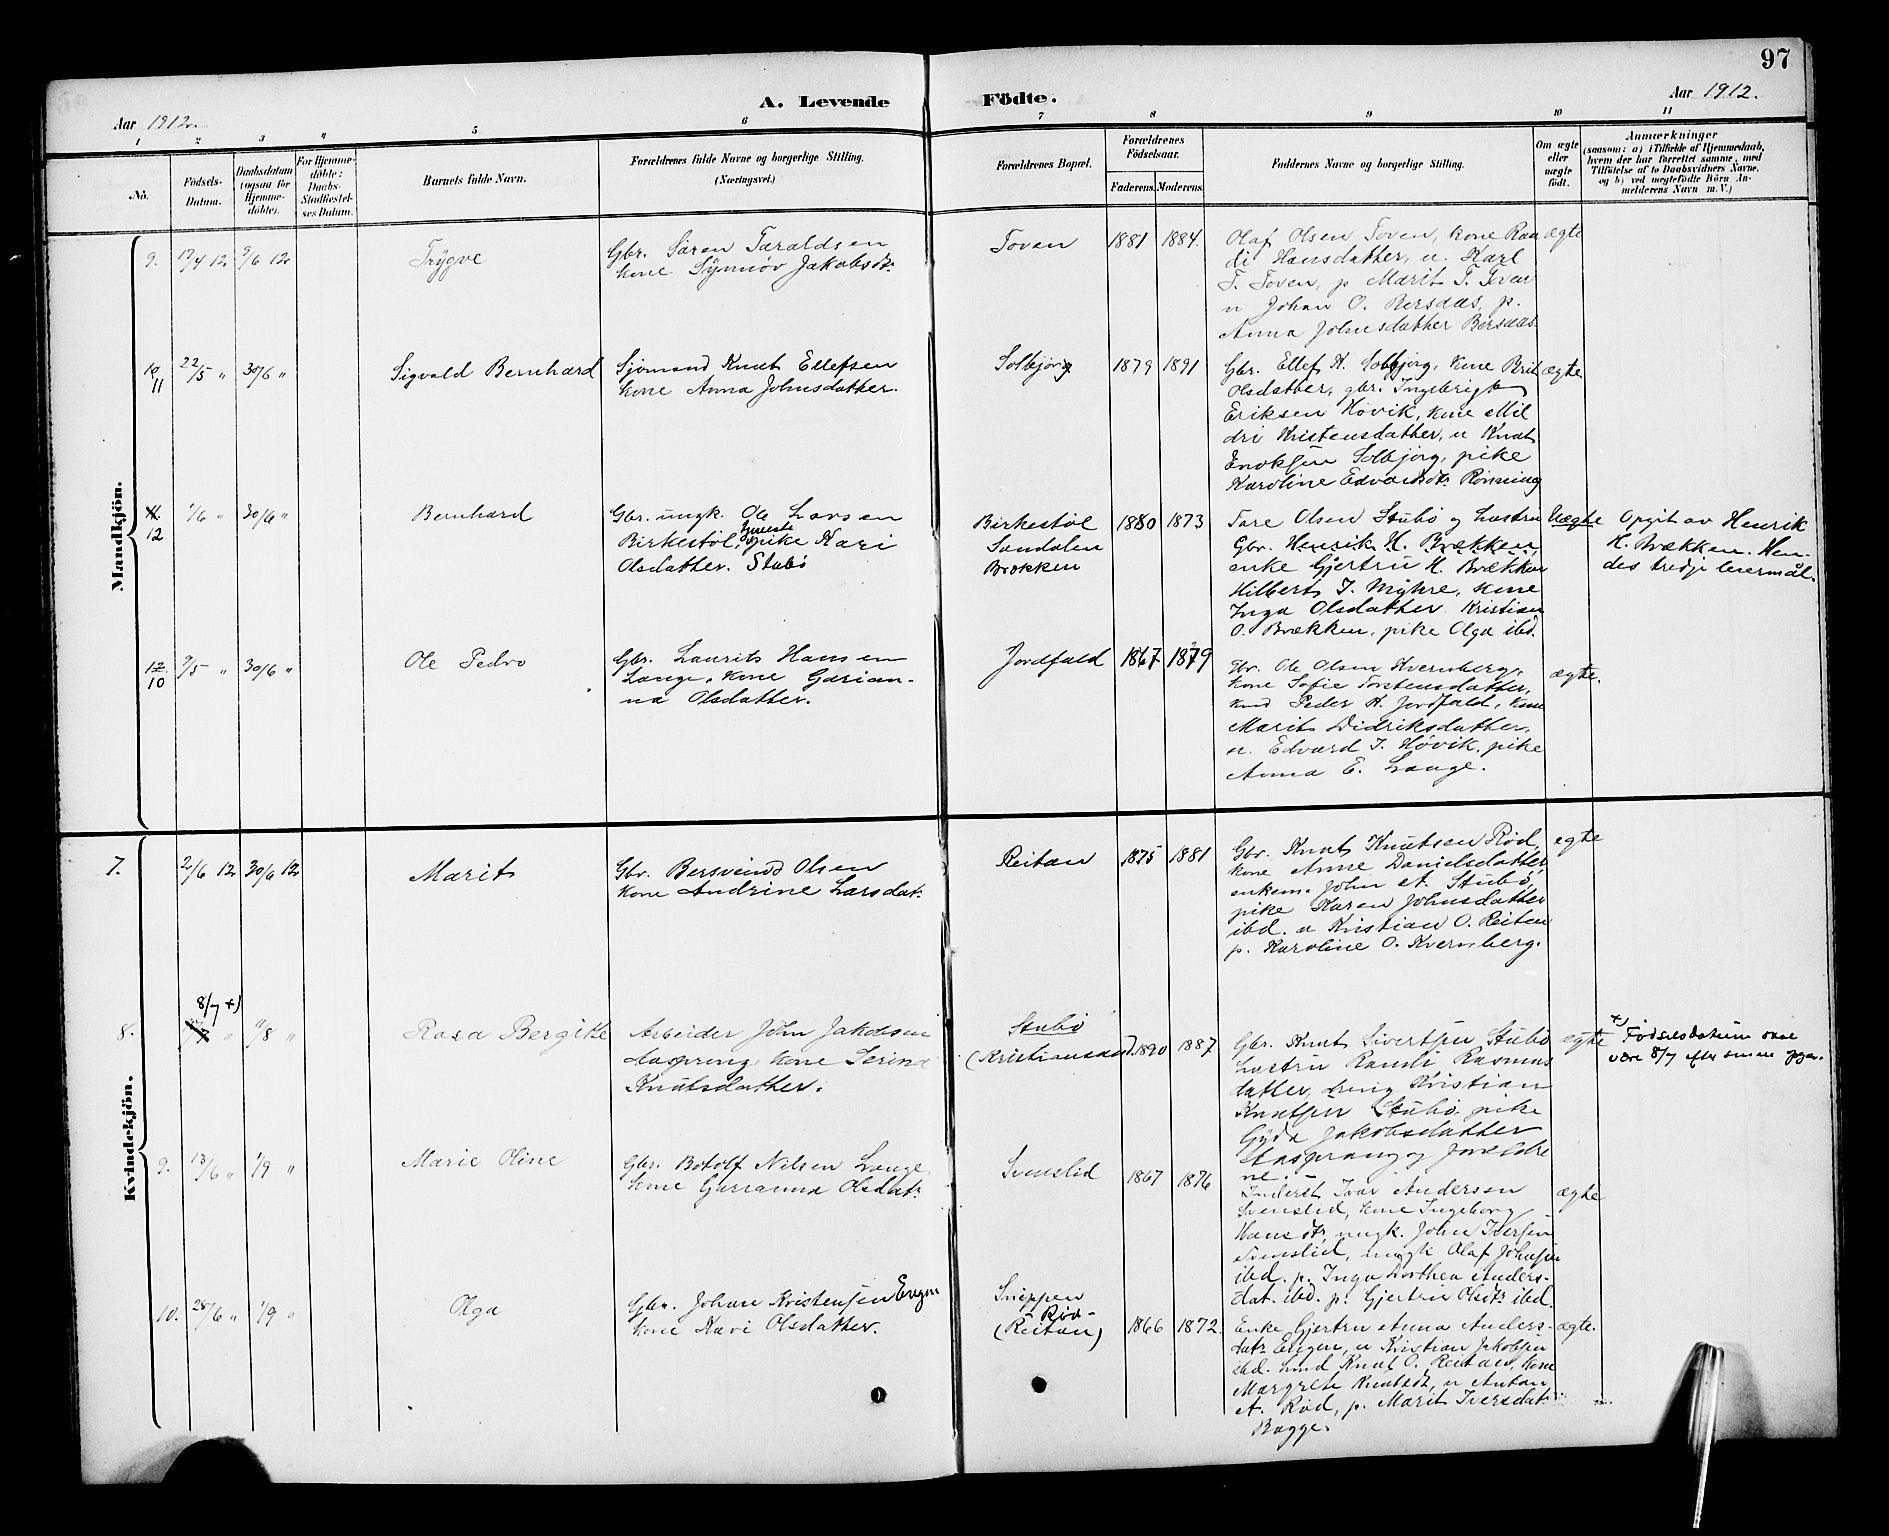 97
A. Levende Födte.
Aar 1912.
Aar 1912.
1 2 3 4 5 6 7 8 9 10 11
No.
Födsels-
Datum.
Daabsdatum
(ogsaa for
Hjemme-
döbte).
For Hjemme-
döbte:
Daabs-
Stadfæstel-
ses Datum.
Barnets fulde Navn.
Forældrenes fulde Navne og borgerlige Stilling.
(Næringsvei.)
Forældrenes Bopæl.
Forældrenes
Födselsaar.
Faderens. Moderens.
Faddernes Navne og borgerlige Stilling.
Om ægte
eller
uægte
födt.
Anmærkninger
(saasom: a) i Tilfælde af Hjemmedaab,
hvem der har forrettet samme, med
Tilföielse af to Daabsvidners Navne,
og b) ved uægtefödte Börn An-
melderens Navn m. V.)
Mandkjön.
9. 17/4 12 9/6 12
Trygve
Gbr. Sören Taraldsen
kone Synnöv Jakobsdtr.
Toven
1881 1884.
Olaf Olsen Toven, kone Ran
di Hansdatter, u. Karl
T. Toven, p Marit T. Toven
u Johan O. Bersaas, p.
Anna Johnsdatter Bersaas.
ægte
10/11 22/5 " 30/6 "
Sigvald Bernhard
Sjömand Knut Ellefsen
kone Anna Johnsdatter.
Solbjørg
1879 1891
Gbr. Ellef K. Solbjørg, kone Brit
Olsdatter, gbr. Ingebrigt
Eriksen Hövik, kone Mil
dri Kristensdatter, u Knut
Enoksen Solbjørg, pike
Karoline Edvardsdtr Rönning
ægte
11. 12 1/6 " 30/6 "
Bernhard
Gbr. ungk. Ole Larsen
Birkestöl, tjeneste pike Kari
Olsdatter. Stubö
Birkestöl
Sandalen
Brækken
1880 1873
Tore Olsen Stubö og hustru
Gbr. Henrik H. Brækken,
enke Gjertru H. Brækken
Hilbert J. Myhre, kone
Inga Olsdatter. Kristian
O. Brækken, pike Olga ibd.
Uægte
Opgit av Henrik
H. Brækken. Hen-
des tredje leiermål.
12/10 9/5 " 30/6 "
Ole Pedro
Gbr. Laurits Hansen
Lange, kone Gurian-
na Olsdatter.
Jordfald
1867 1879
Gbr. Ole Olsen Kvernberg,
kone Sofie Torstensdatter,
kmd Peder K. Jordfald, kone
Marit Didriksdatter,
u. Edvard J. Hövik, pike
Anna E. Lange.
ægte.
Kvindekjön.
7. 2/6 12 30/6 12
Marit
Gbr. Bersvend Olsen
kone Andrine Larsdat.
Reitan
1875 1881
Gbr. Knut Knutsen Röd,
kone Anne Danielsdatter
enkem. John A. Stubö,
pike Karen Johnsdatter
ibd. u Kristian O. Reiten
p. Karoline O. Kvernberg.
ægte
8. 8/7 +) " 11/8 "
Rosa Bergitte
Arbeider John Jakobsen
Aasprong, kone Serina
Knutsdatter.
Stubö
(Kristiansund).
1890 1887
Gbr. Knut Sivertsen Stubö
hustru Randi Rasmus
datter, dreng Kristian
Knutsen Stubö, pike
Gyda Jakobsdatter
Aasprang og foreldre
ne. -
ægte
+) Födselsdatum skal
være 8/7 efter senere opgav.
9. 13/6 " 1/9 "
Marie Oline
Gbr. Botolf Nilsen Lange,
kone Gurianna Olsdat.
Svenslid
1867 1876
Inderst Ivar Andersen
Svenslid, kone Ingeborg
Hansdtr, ungk. John Iversen
Svenslid, ungk Olaf Johnsen
ibd. p. Inga Dorthea Anders-
dat. ibd. p. Gjertru Olsdtr ibd.
ægte
10. 28/6 " 1/9 "
Olga
Gbr. Johan Kristensen Engen
kone Kari Olsdatter.
Snippen
- Röd -
(Reitan)
1866 1872.
Enke Gjertru Anna Anders-
datr Engen, u Kristian Jakobsen
ibd. Smed Knut O. Reitan, kone
Margrete Knutsdt, u Anton
A. Röd, p. Marit Iversdat.
Bagge.
ægte.